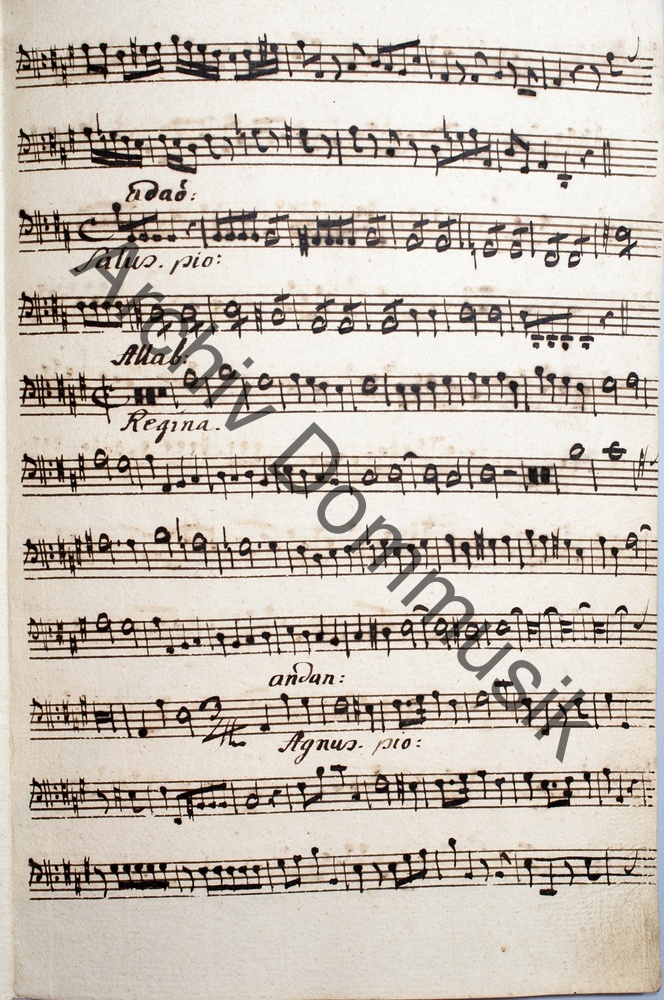 adaó:
Salus. pio:
Allab:
Regina.
andan:
Agnus. pio:
Archiv Dommusik